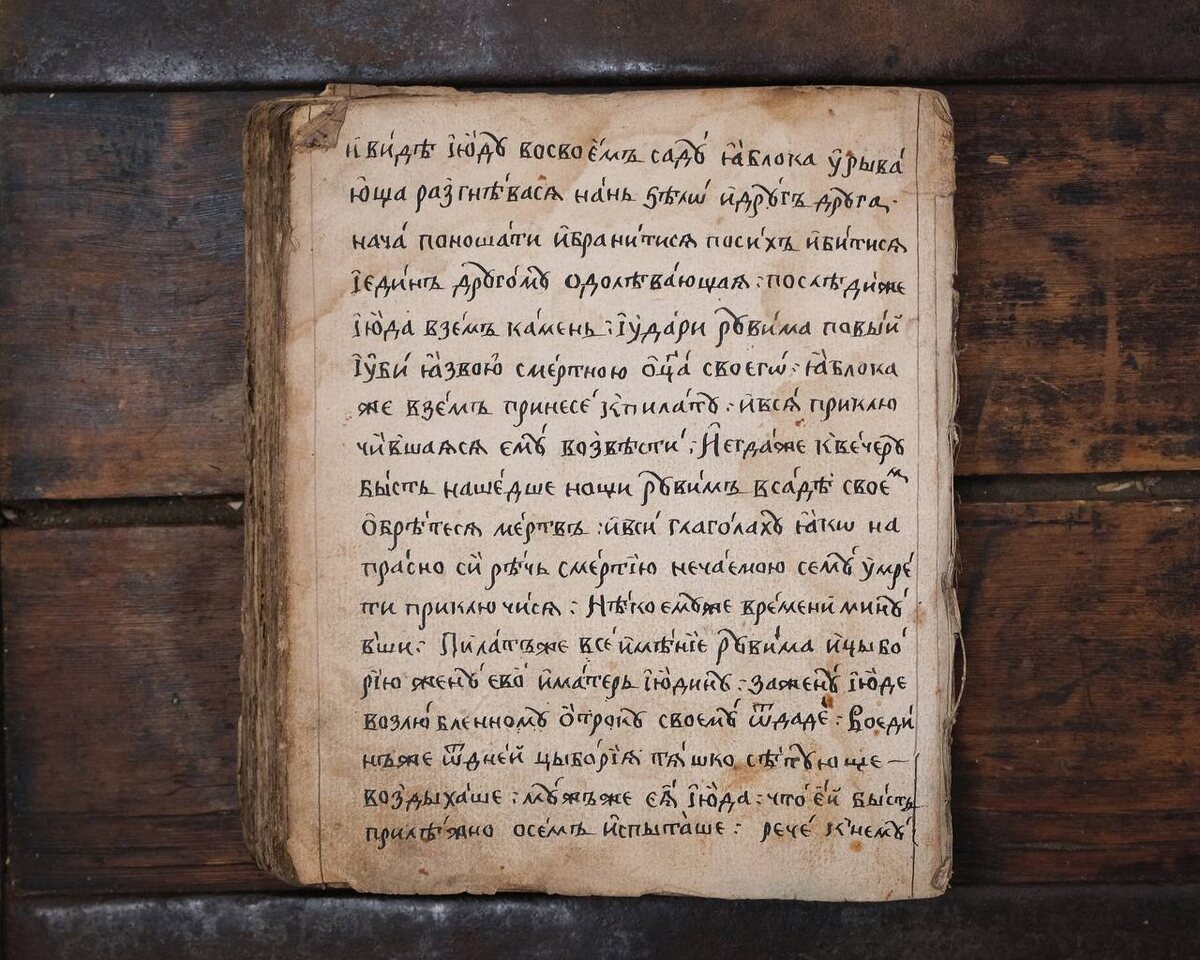 и҆ ви́дѣ І҆ю́дꙋ восвое́мъ садꙋ̀ ꙗ҆́блока ᲂу҆рыва́
юща разгнѣ́васѧ на́нь ѕѣлѡ̀ и҆дрꙋ́гъ дрꙋга,
нача́ поношати и҆брани́тисѧ поси́хъ и҆би́тисѧ
І҆еди́нъ дрꙋго́мꙋ одолѣва́ющаѧ : послѣди́же
І҆ю́да вземъ ка́мень : І҆ꙋда́ри рꙋви́ма повы́й
І҆ꙋби́ ꙗ҆́звою сме́ртною о҆ц҃а̀ своегѡ̀ : ꙗ҆́блока
же взе́мъ принесе́ кпила́тꙋ : и҆всѧ̀ приклю
чи́вшаѧсѧ емꙋ̀ возвѣсти́ : И҆егда́же кве́черꙋ
бы́сть наше́дше нощи рꙋви́мъ вса́дѣ свое́м
О҆брѣ́тесѧ ме́ртвъ : и҆вси́ глаго́лахꙋ ꙗ҆́кѡ на
пра́сно си́й рѣ́чь сме́ртїю неча́емою семꙋ̀ ᲂу҆мре́
ти приключи́сѧ : Нѣ́коемꙋже времени минꙋ́
вши : Пила́тъже все́ и҆мѣ́нїе рꙋви́ма и҆цыбо́
рїю женꙋ̀ ево̀ и҆ма́терь І҆ю́динꙋ : заженꙋ̀ І҆ю́де
возлю́бленномꙋ о҆́трокꙋ своемꙋ̀ ѿдаде́ : Воеди́
нъже ѿдне́й цыбо́рїѧ тѧ́шко сѣ́тꙋюще —
воздыха́ше : мꙋ́жъже еѧ̀ І҆ю́да : что́ е҆́й бы́сть
прилѣ́жно осе́мъ и҆спыта́ше : рече́ к̾немꙋ̀